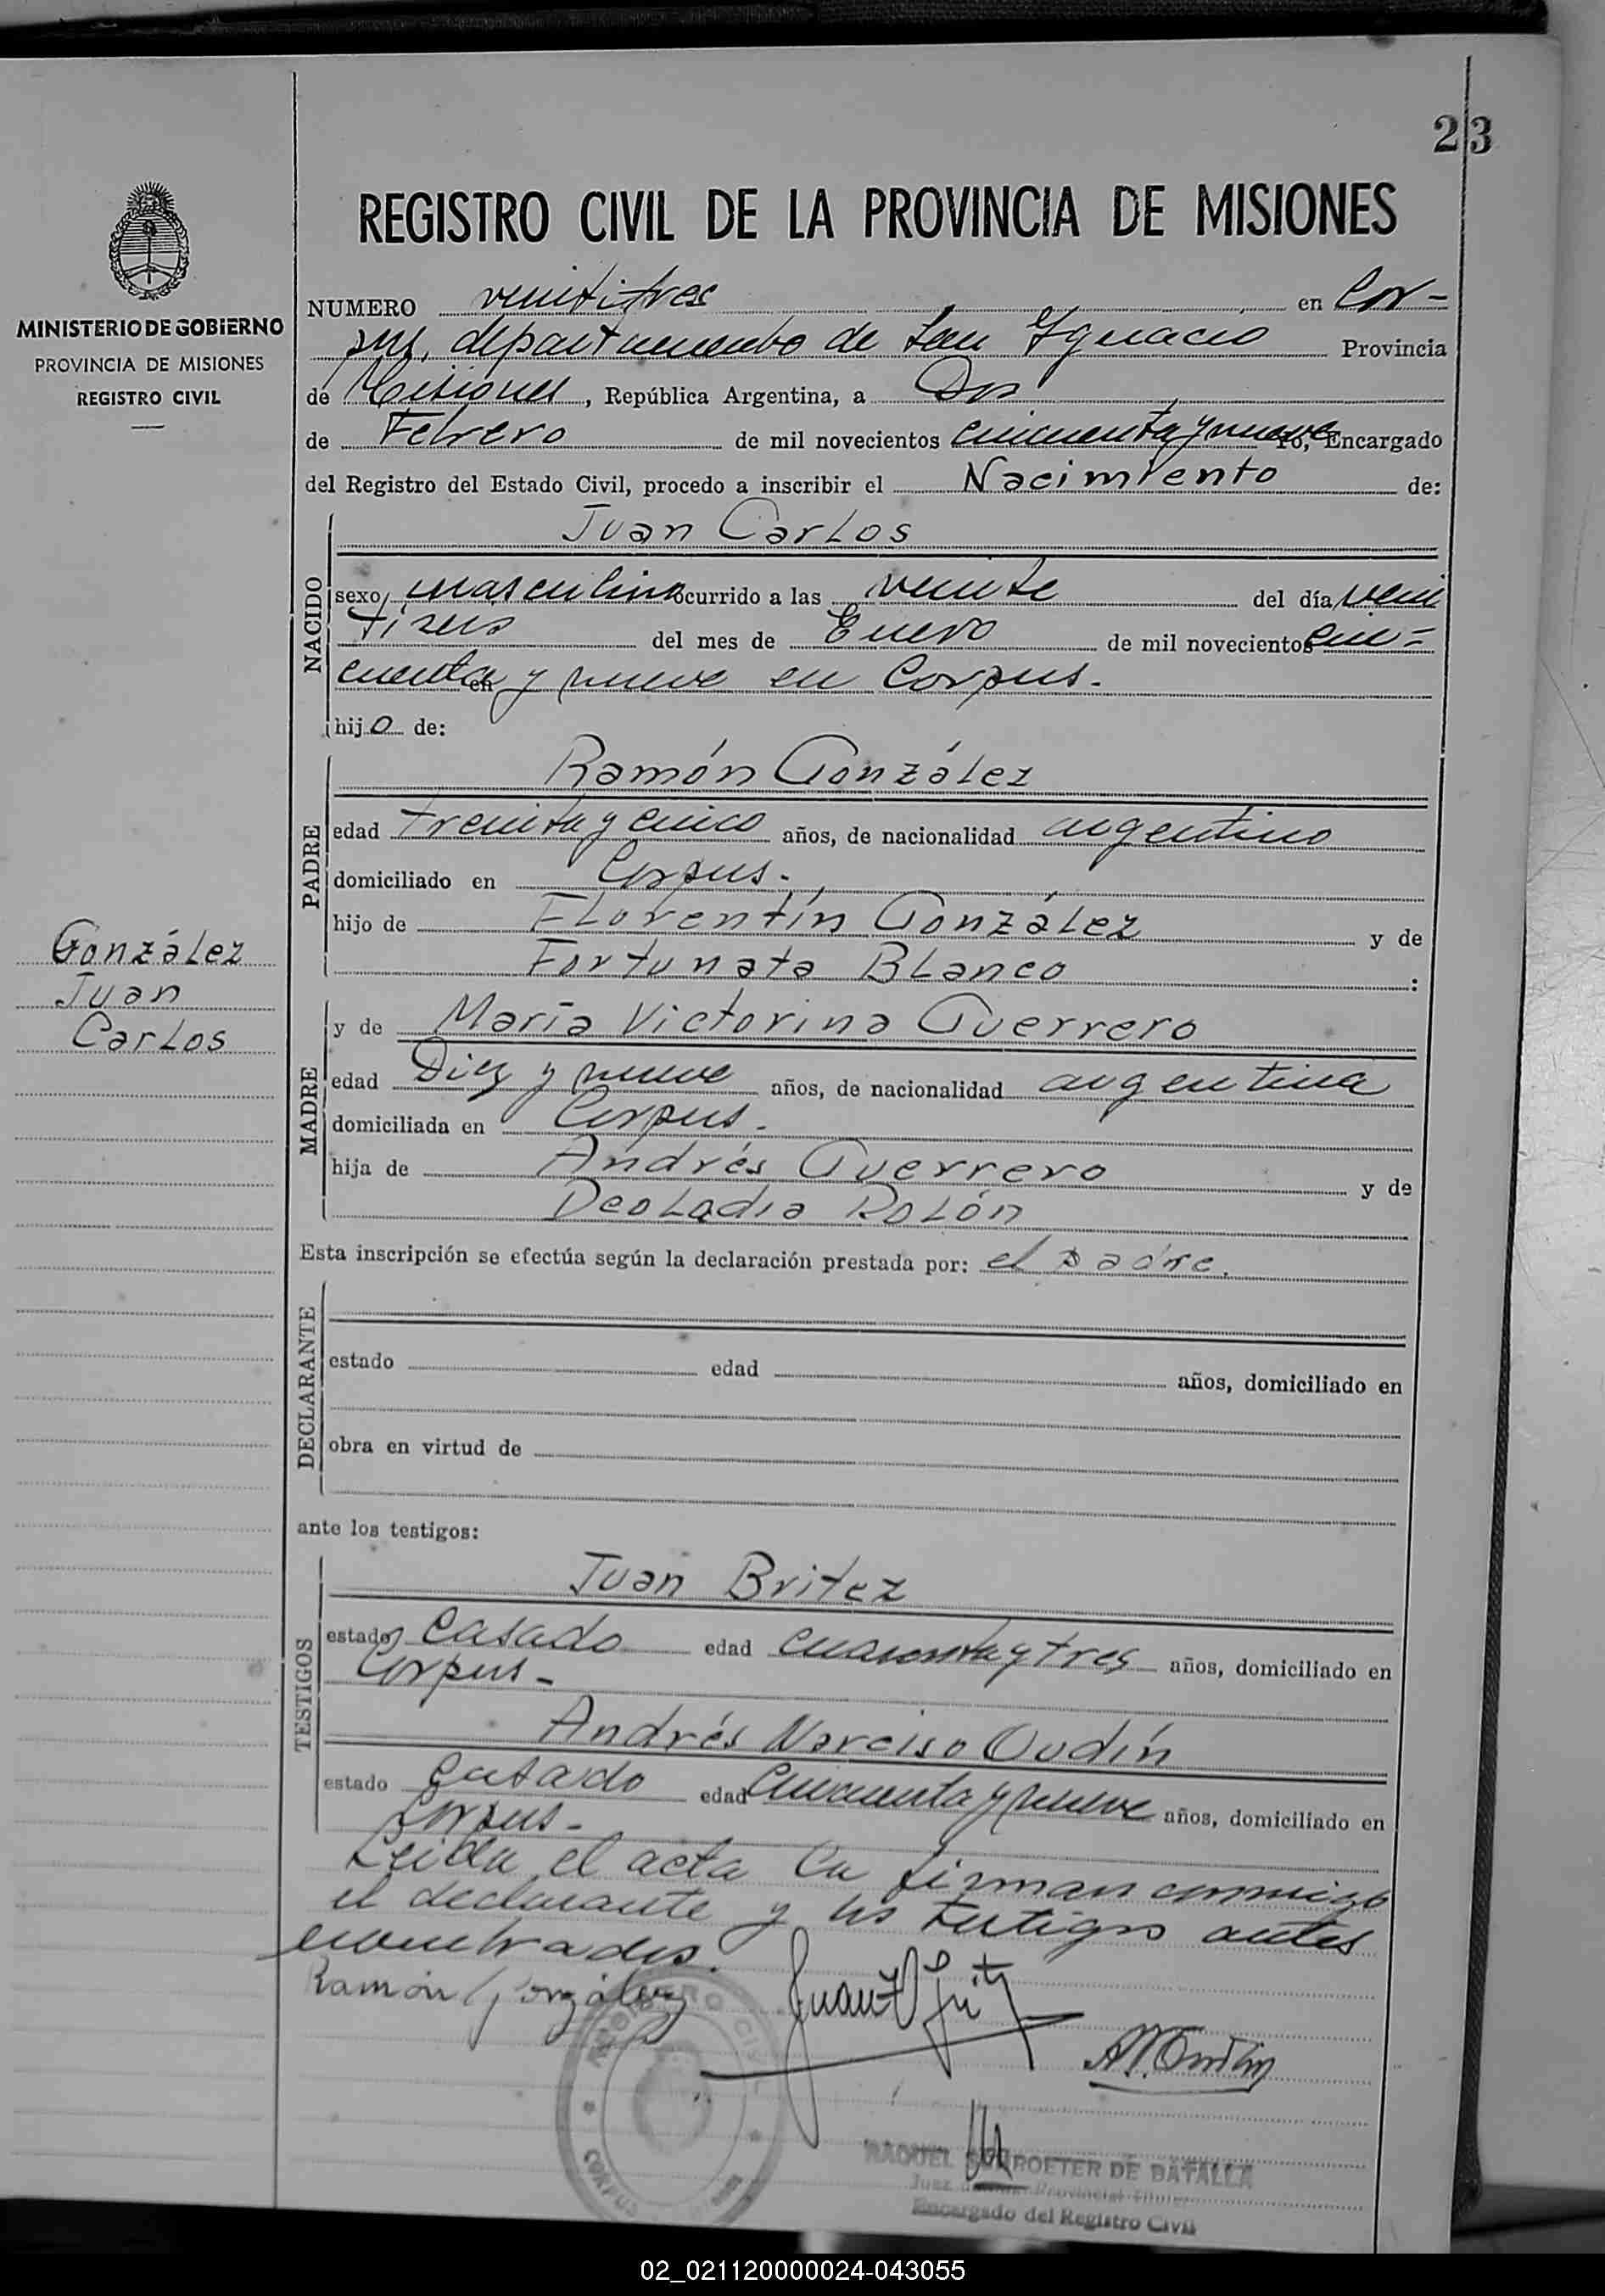 23
REGISTRO CIVIL DE LA PROVINCIA DE MISIONES
MINISTERIO DE GOBIERNO
PROVINCIA DE MISIONES
REGISTRO CIVIL
NUMERO veintitres en Cor-
pus, departamento de San Ygnacio Provincia
de Misiones, República Argentina, a Dos
de Febrero de mil novecientos cincuenta y nueve Yo, Encargado
del Registro del Estado Civil, procedo a inscribir el Nacimiento de:
NACIDO
Juan Carlos
sexo masculino ocurrido a las veinte del día vein
tiseis del mes de Enero de mil novecientos cin-
cuenta y nueve en Corpus.
hijo de:
PADRE
Ramón González
edad treinta y cinco años, de nacionalidad argentino
domiciliado en Corpus.
hijo de Florentín González y de
Fortunata Blanco :
González
Juan
Carlos
MADRE
y de María Victorina Guerrero
edad Diez y nueve años, de nacionalidad argentina
domiciliada en Corpus.
hija de Andrés Guerrero y de
Deoladia Rolón
Esta inscripción se efectúa según la declaración prestada por: el padre.
DECLARANTE
estado edad años, domiciliado en
obra en virtud de
ante los testigos:
TESTIGOS
Juan Britez
estado Casado edad cuarenta y tres años, domiciliado en
Corpus-
Andrés Narciso Oudín
estado Casado edad Cincuenta y nueve años, domiciliado en
Corpus-
Leida el acta la firman conmigo
el declarante y los testigos antes
nombrados.
Ramón González
A N Oudin
REGISTRO CIVIL
CORPUS
RAQUEL SCHROETER DE BATALLA
Juez
Encargado del Registro Civil
02_021120000024-043055